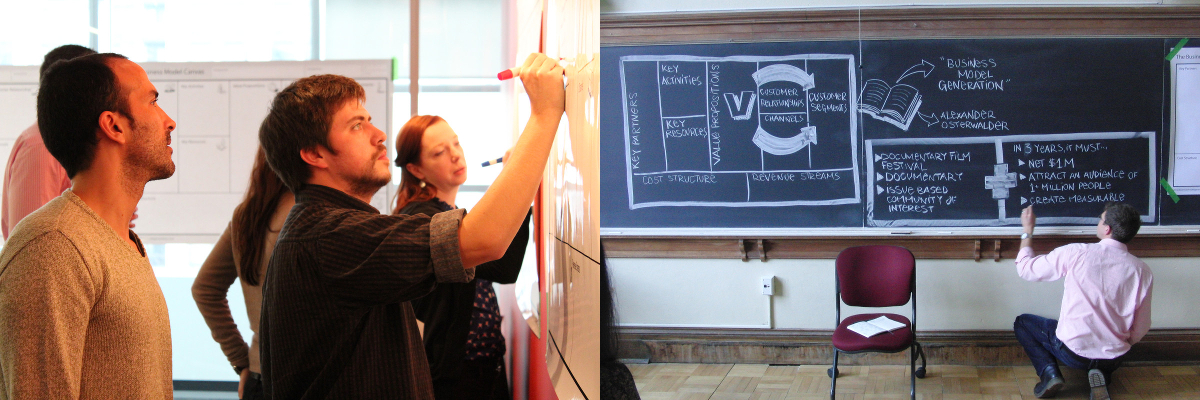 Business Model Canvas
KEY PARTNERS
KEY
ACTIVITIES
KEY
RESOURCES
VALUE PROPOSITIONS
V
CUSTOMER
RELATIONSHIPS
CHANNELS
CUSTOMER
SEGMENTS
COST STRUCTURE
REVENUE STREAMS
"BUSINESS
MODEL
GENERATION"
ALEXANDER
OSTERWALDER
DOCUMENTARY FILM
FESTIVAL
DOCUMENTARY
ISSUE BASED
COMMUNITY OF
INTEREST
IN 3 YEARS, IT MUST...
NET $1M
ATTRACT AN AUDIENCE OF
1+ MILLION PEOPLE
CREATE MEASURABLE
The Business